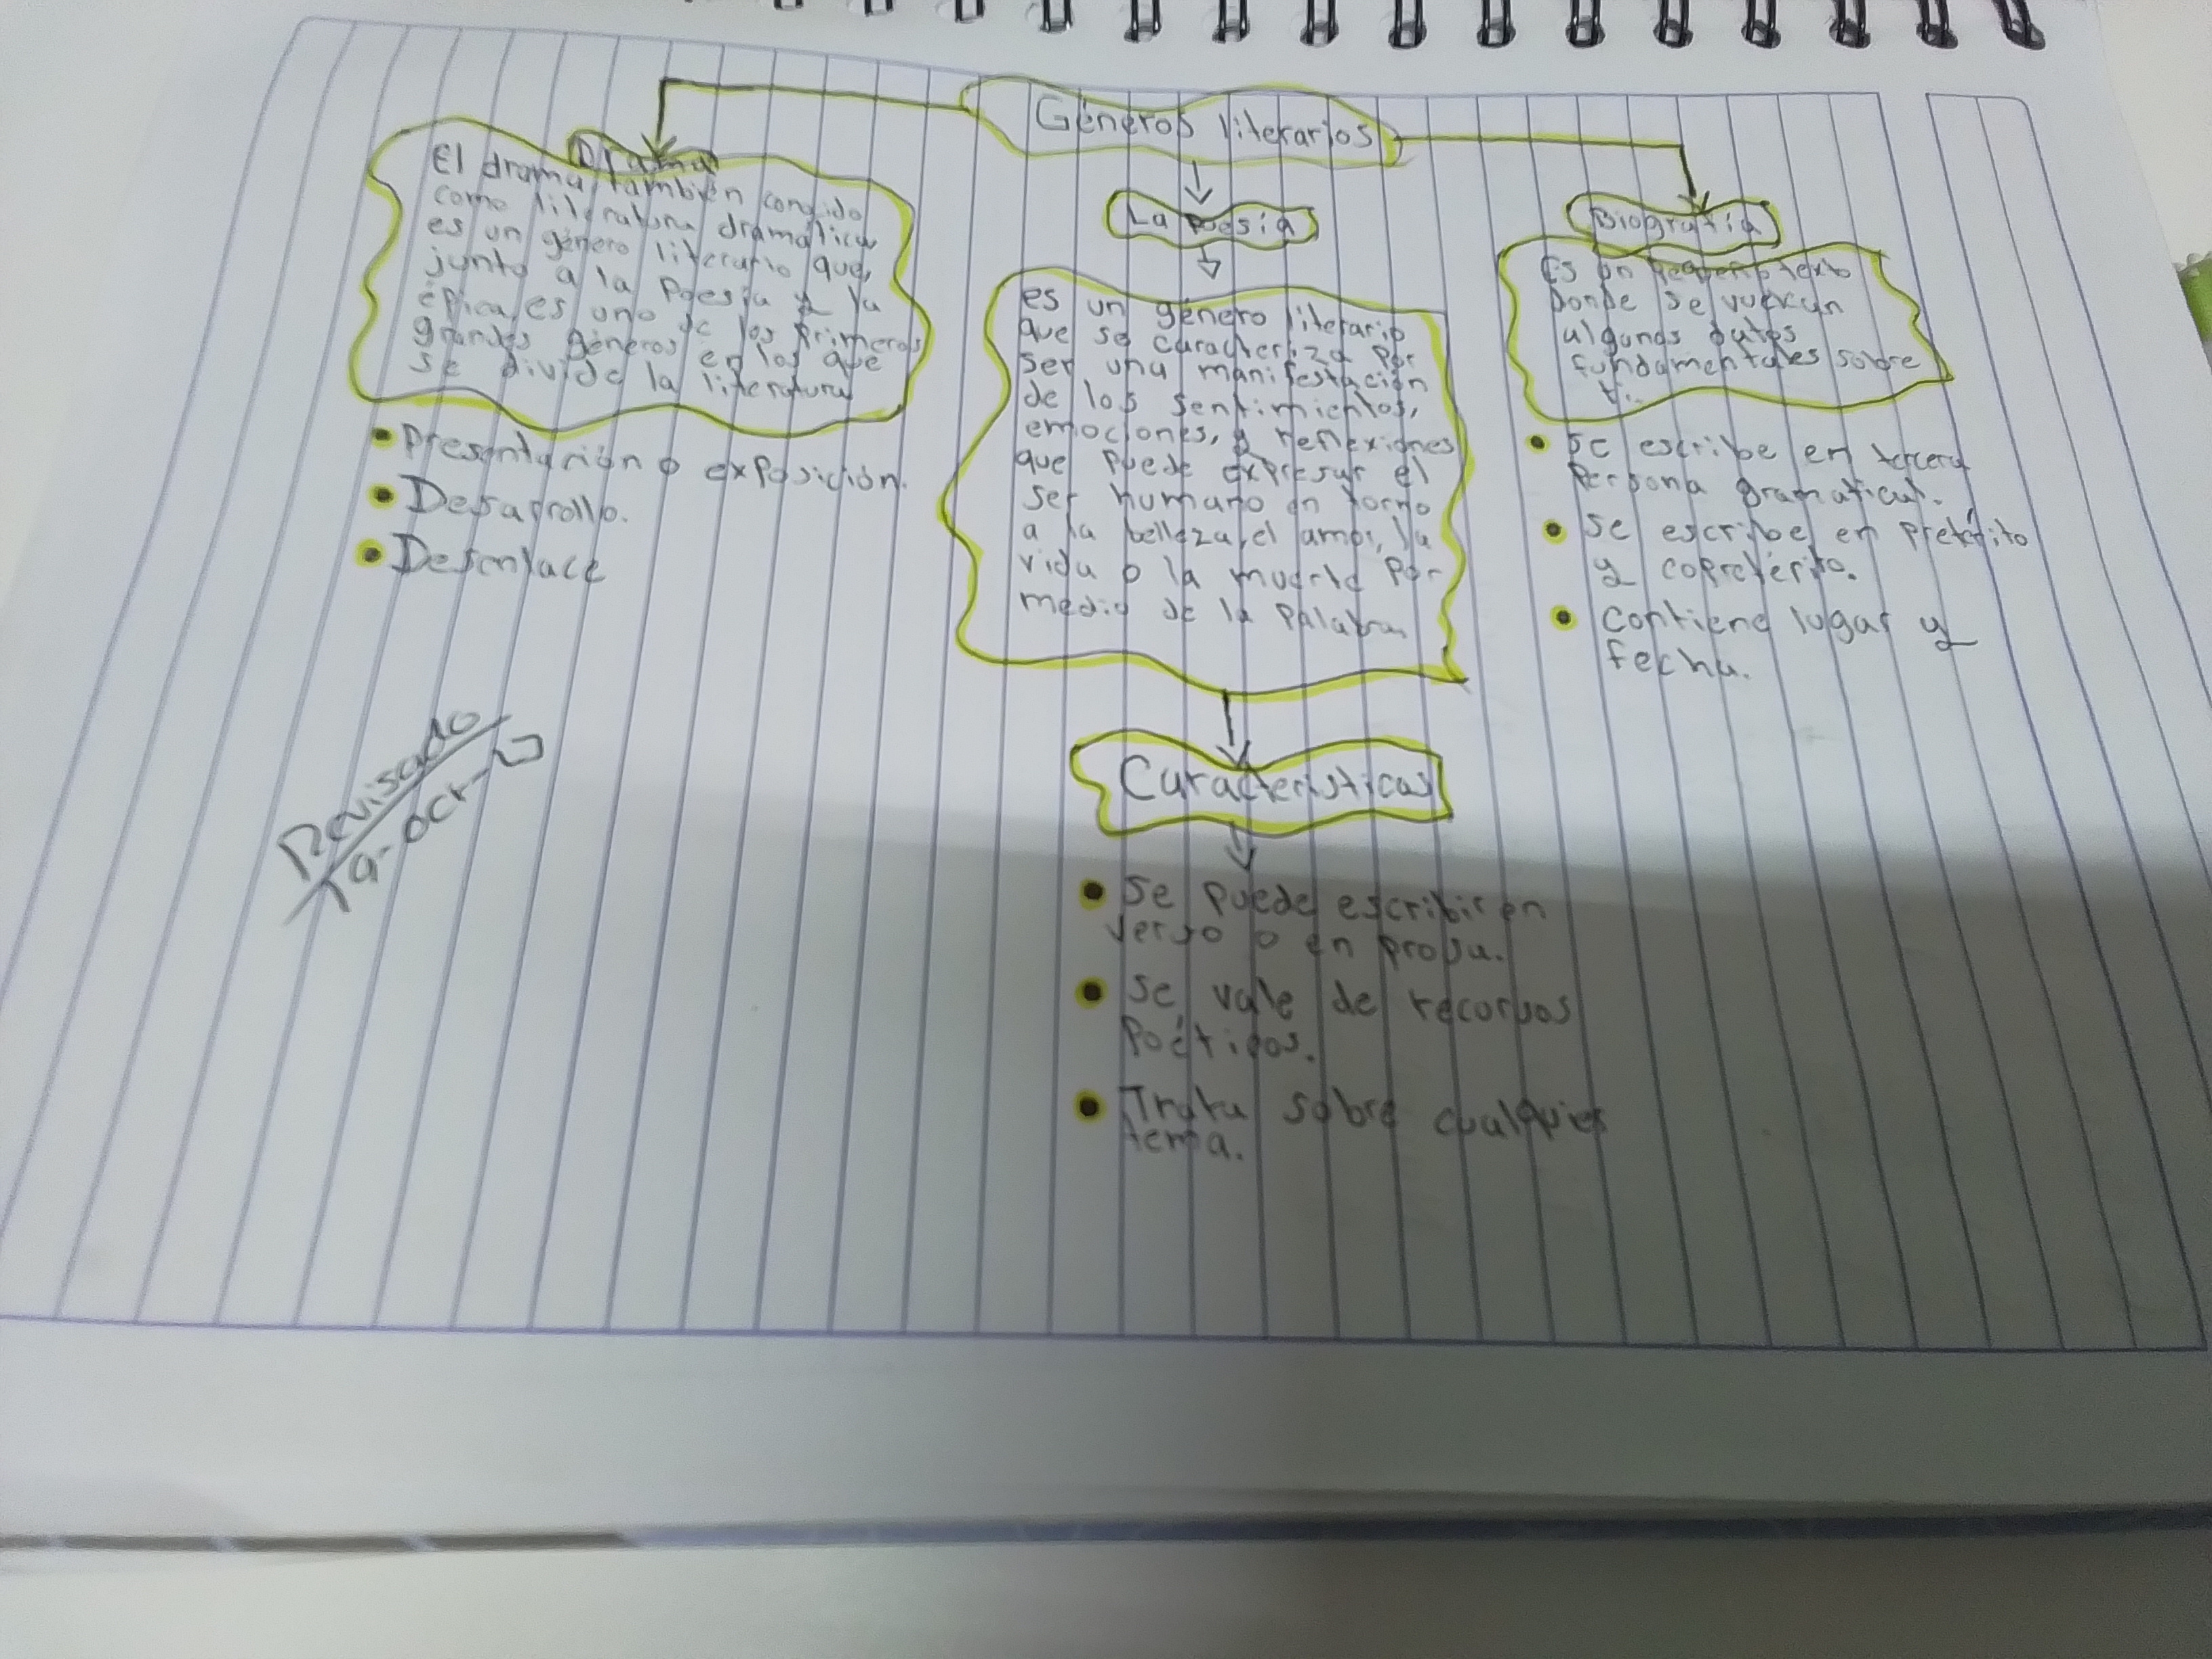 Géneros literarios
Drama
El drama, también conocido
como literatura dramática
es un género literario que,
junto a la poesía y la
épica, es uno de los primeros
grandes géneros en los que
se divide la literatura
• Presentación o exposición.
• Desarrollo.
• Desenlace
La Poesía
es un género literario
que se caracteriza por
ser una manifestación
de los sentimientos,
emociones, y reflexiones
que puede expresar el
ser humano en torno
a la belleza, el amor, la
vida o la muerte por
medio de la palabra
Características
• Se puede escribir en
verso o en prosa.
• Se vale de recursos
Poéticos.
• Trata sobre cualquier
tema.
Biografía
Es un pequeño texto
Donde se vuelcan
algunos datos
fundamentales sobre
ti.
• Se escribe en tercera
Persona gramatical.
• Se escribe en pretérito
y copretérito.
• Contiene lugar y
fecha.
Revisado